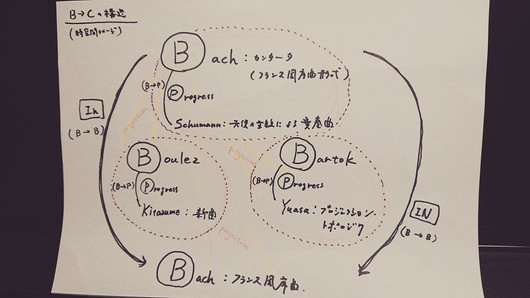 B→Cの構造
(時空間イメージ)
Bach：カンタータ
(フランス風序曲形式)
(B→P)
Progress
Schumann：天使の主題による変奏曲
In
(B→B)
Boulez
(B→P)
Progress
Kitazume：新曲
Bartok
(B→P)
Progress
Yuasa：プロジェクション・
トポロジク
IN
(B→B)
Bach：フランス風序曲